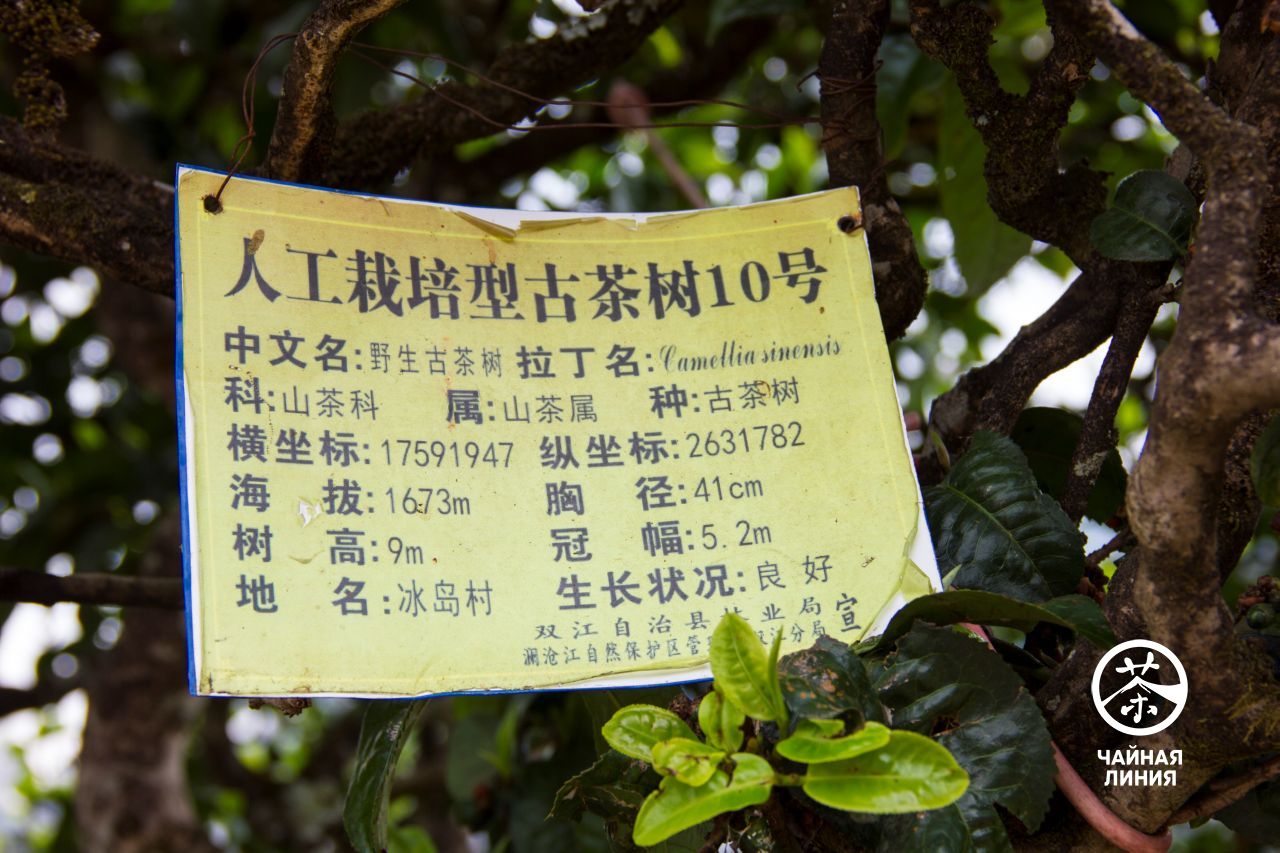 人工栽培型古茶树10号
中文名:野生古茶树 拉丁名:Camellia sinensis
科:山茶科 属:山茶属 种:古茶树
横坐标:17591947 纵坐标:2631782
海拔:1673m 胸径:41cm
树高:9m 冠幅:5.2m
地名:冰岛村 生长状况:良好
双江自治县 业局 宣
澜沧江自然保护区管 江分局
茶
ЧАЙНАЯ
ЛИНИЯ